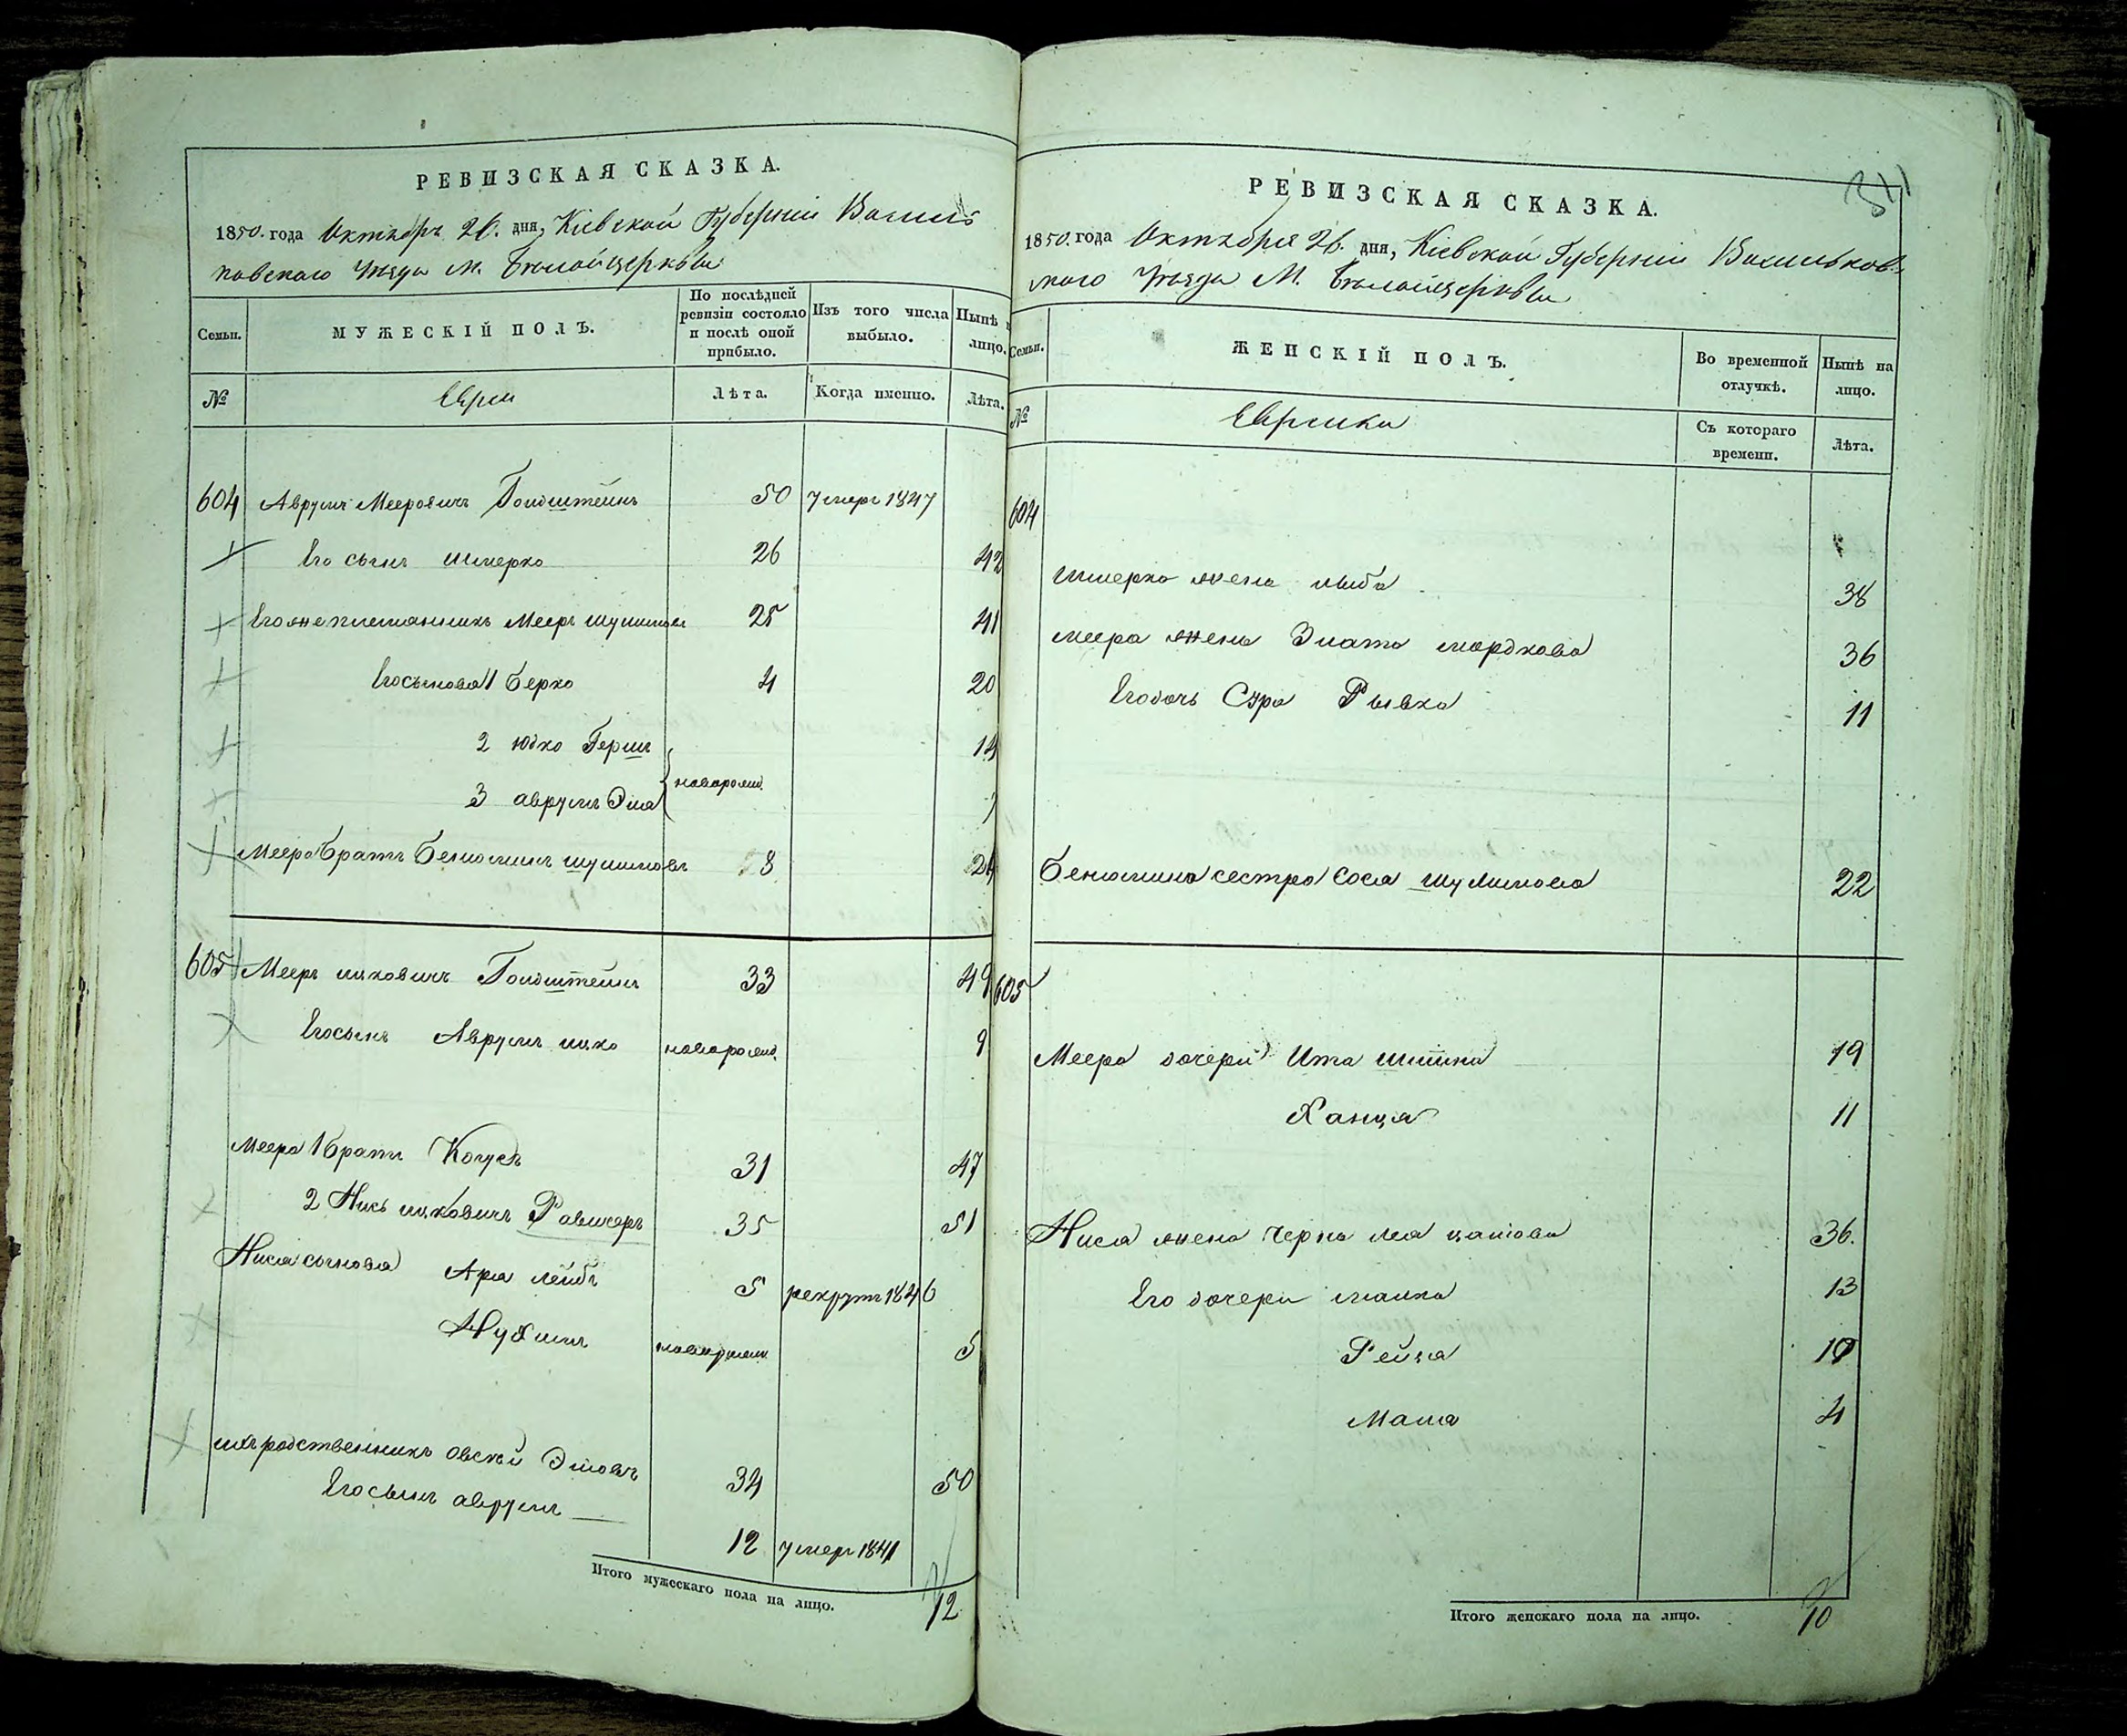 РЕВИЗСКАЯ СКАЗКА.
1850. года Октября 26. дня, Кіевской Губерніи Василь
ковскаго Уѣзда М. Бѣлойцеркви
Семьи.
МУЖЕСКІЙ ПОЛЪ.
По послѣдней ревизіи состояло и послѣ оной прибыло.
Изъ того числа выбыло.
Нынѣ на лицо.
№
Евреи
Лѣта.
Когда именно.
Лѣта.
604 Аврумъ Мееровичъ Голдштейнъ 50 умеръ 1847
Его сынъ Шмерко 26 42
Егоже племянникъ Мееръ Шулимовъ 25 41
Его сыновья 1 Берко 4 20
2 Юдко Герш 14
новорожд.
3 аврумъ Эля 7
Меера братъ Бенюминъ шулимовъ 8 24
605 Мееръ ицковичъ Голдштейнъ 33 49
Его сынъ Аврумъ ицко новорожд. 9
Меера 1 братъ Когусъ 31 47
2 Нись ицковичъ 35 51
Нися сыновья Ара лейбъ 5 рекрутъ 1846
Нухимъ новорожден 5
ихъ родственникъ овсей Эліовъ 34 50
Его сынъ аврумъ 12 умеръ 1841
Итого мужескаго пола на лицо. 12
РЕВИЗСКАЯ СКАЗКА.
311
1850. года Октября 26. дня, Кіевской Губерніи Васильков-
скаго Уѣзда М. Бѣлойцеркви
Семьи.
ЖЕНСКІЙ ПОЛЪ.
Во временной отлучкѣ.
Нынѣ на лицо.
№
Еврейки
Съ котораго времени.
Лѣта.
604
Шмерка жена Цыба 38
меера жена Злата мордкова 36
Его дочь Сура Рывка 11
Бенюмина сестра Сося шулимова 22
605
Меера дочери Ита 19
Ханця 11
Нися жена Черна леа 36.
Его дочери малка 13
Рейза 10
Маша 4
Итого женскаго пола на лицо. 10